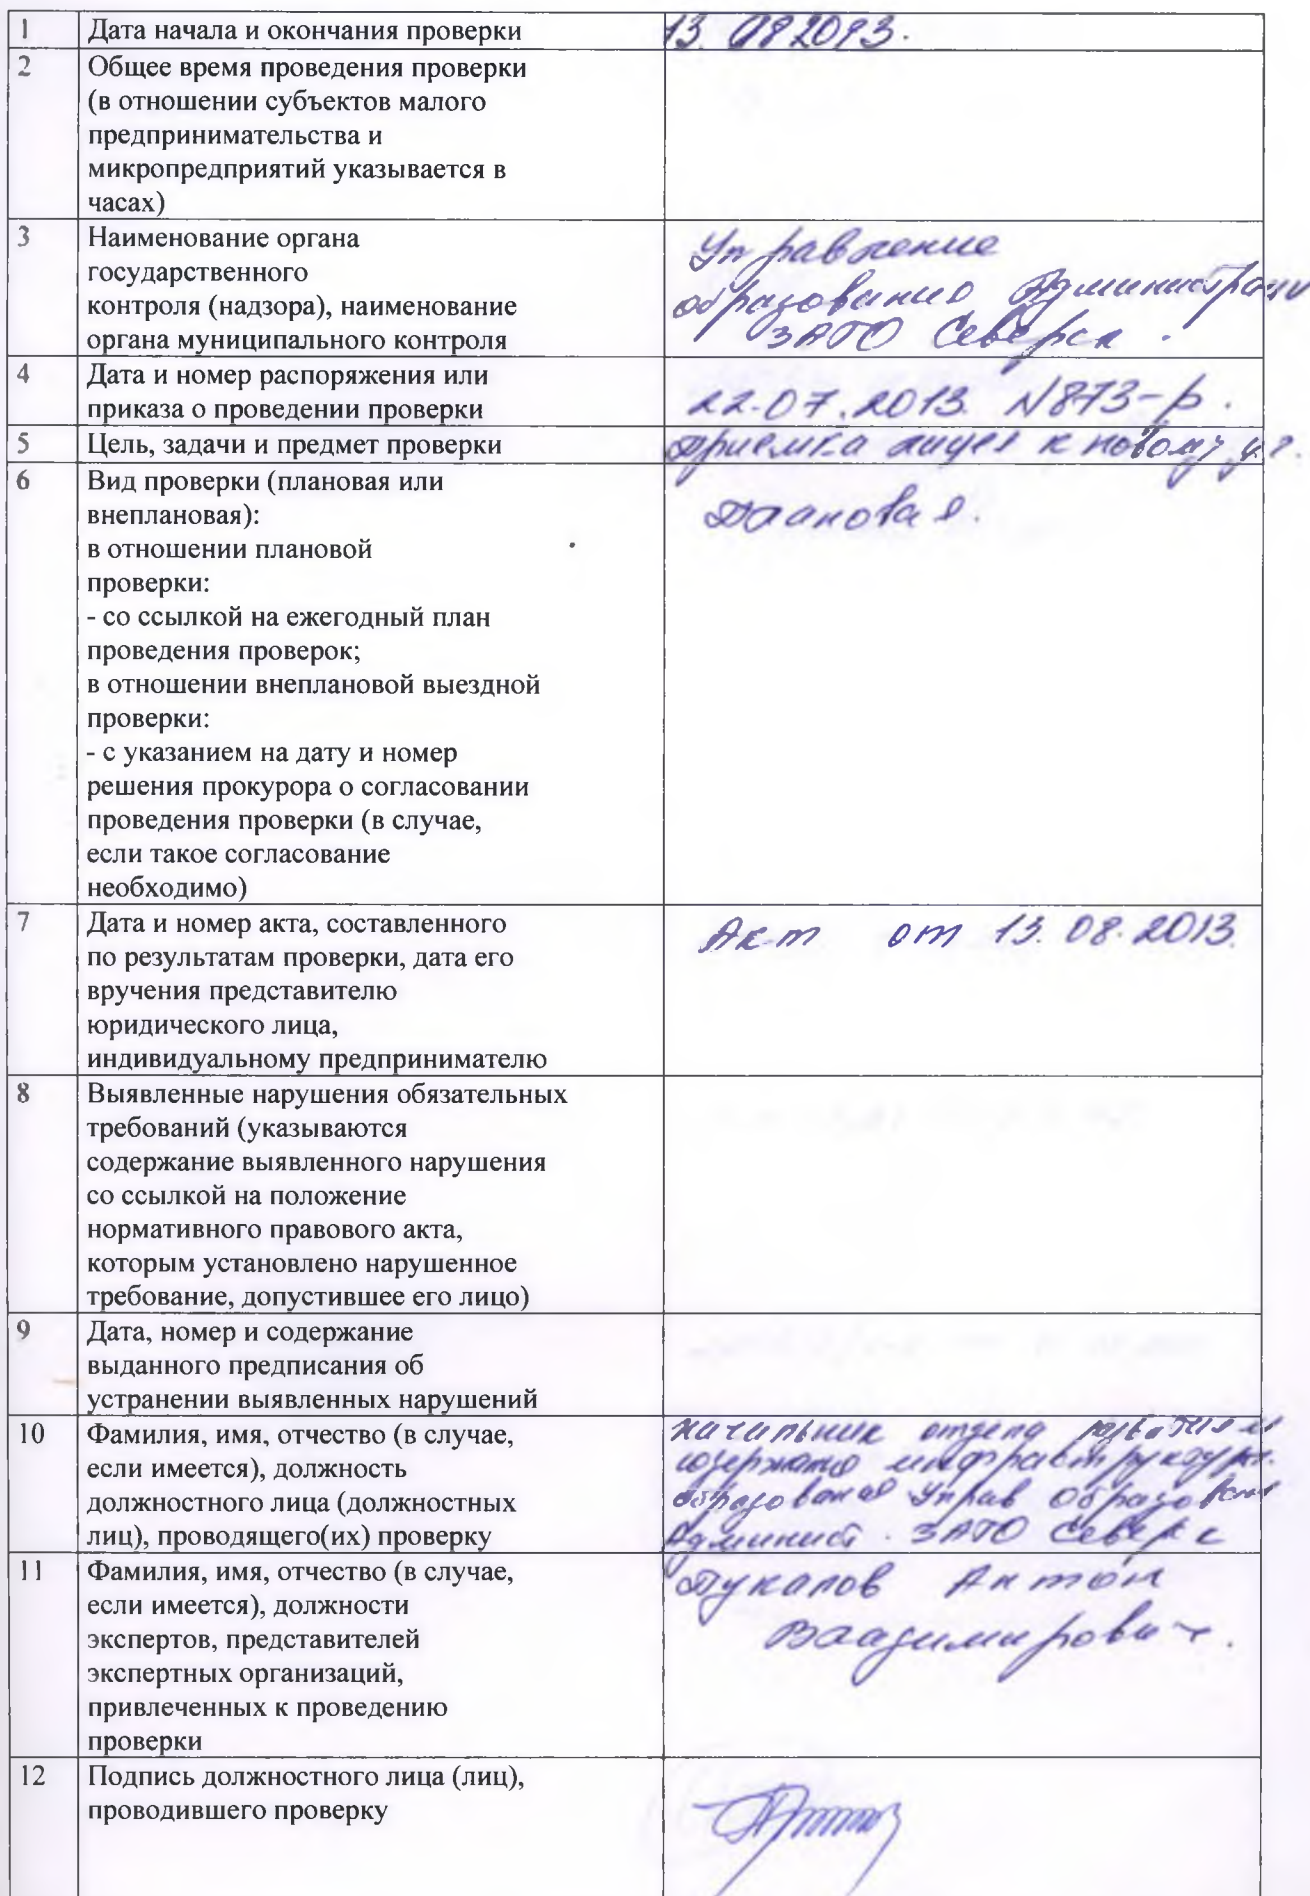 1 Дата начала и окончания проверки 13.08 2013.
2 Общее время проведения проверки
(в отношении субъектов малого
предпринимательства и
микропредприятий указывается в
часах)
3 Наименование органа
государственного
контроля (надзора), наименование
органа муниципального контроля
Управление
образования Администраци
ЗАТО Северск.
4 Дата и номер распоряжения или
приказа о проведении проверки 22.07.2013 N873-р.
5 Цель, задачи и предмет проверки Приемка лицея к новому уч.
6 Вид проверки (плановая или
внеплановая):
в отношении плановой
проверки:
- со ссылкой на ежегодный план
проведения проверок;
в отношении внеплановой выездной
проверки:
- с указанием на дату и номер
решения прокурора о согласовании
проведения проверки (в случае,
если такое согласование
необходимо)
Плановая.
7 Дата и номер акта, составленного
по результатам проверки, дата его
вручения представителю
юридического лица,
индивидуальному предпринимателю
Акт от 13.08.2013.
8 Выявленные нарушения обязательных
требований (указываются
содержание выявленного нарушения
со ссылкой на положение
нормативного правового акта,
которым установлено нарушенное
требование, допустившее его лицо)
9 Дата, номер и содержание
выданного предписания об
устранении выявленных нарушений
10 Фамилия, имя, отчество (в случае,
если имеется), должность
должностного лица (должностных
лиц), проводящего(их) проверку
начальник отдела
инфраструктуры
образования Управ Образования
Админист. ЗАТО Северск
11 Фамилия, имя, отчество (в случае,
если имеется), должности
экспертов, представителей
экспертных организаций,
привлеченных к проведению
проверки
Пукалов Антон
Владимирович.
12 Подпись должностного лица (лиц),
проводившего проверку